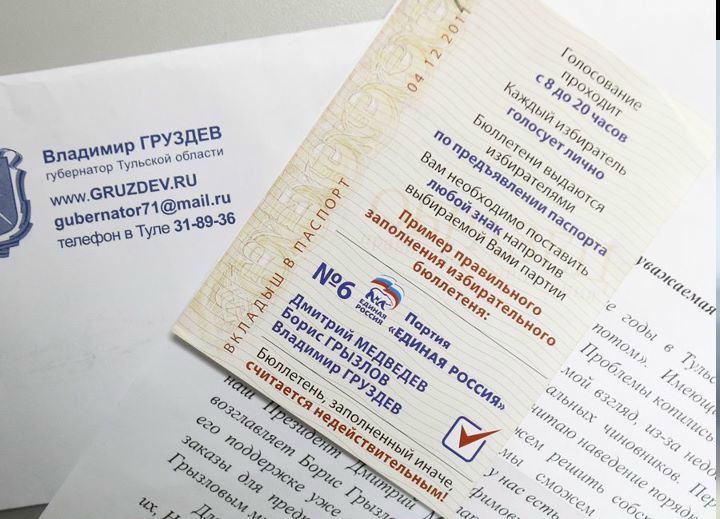 Владимир ГРУЗДЕВ
губернатор Тульской области
www.GRUZDEV.RU
gubernator71@mail.ru
телефон в Туле 31-89-36
ВКЛАДЫШ В ПАСПОРТ
04.12.2011
Голосование
проходит
с 8 до 20 часов
Каждый избиратель
голосует лично
Бюллетени выдаются
избирателями
по предъявлении паспорта
Вам необходимо поставить
любой знак напротив
выбираемой Вами партии
Пример правильного
заполнения избирательного
бюллетеня:
№6
ЕДИНАЯ
РОССИЯ
Партия
«ЕДИНАЯ РОССИЯ»
Дмитрий МЕДВЕДЕВ
Борис ГРЫЗЛОВ
Владимир ГРУЗДЕВ
Бюллетень, заполненный иначе,
считается недействительным!
уважаемая
годы в Тульс
потом». Имеюща
Проблемы копились
мой взгляд, из-за недо
альных чиновников. Пер
читаю наведение порядк
жем решить собс
мы сможем
у нас есть
наш Президент Дмитрий М
возглавляет Борис Грызл
его поддержке уже
заказы для предп
Грызловым м
их, Н